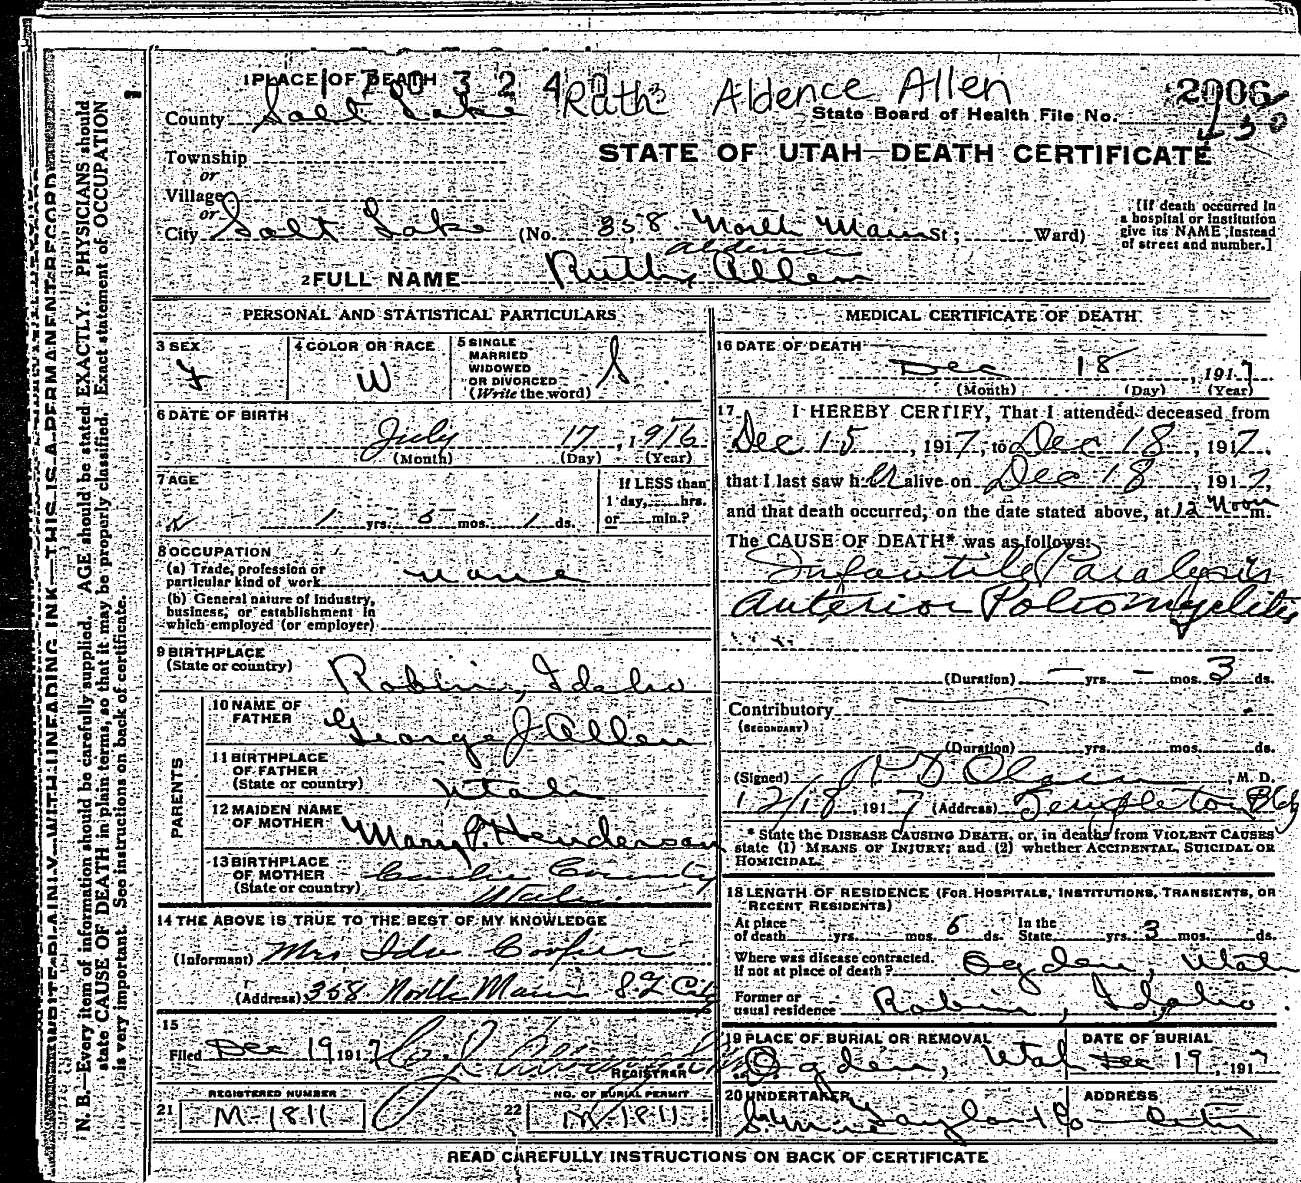 1 PLACE OF DEATH
Ruth Aldence Allen
2006
County Salt Lake
State Board of Health File No.
Township
or
STATE OF UTAH—DEATH CERTIFICATE
Village
or
City Salt Lake (No. 358 North Main St; Ward)
[If death occurred in
a hospital or institution
give its NAME instead
of street and number.]
2 FULL NAME Ruth Allen
PERSONAL AND STATISTICAL PARTICULARS
3 SEX
F
4 COLOR OR RACE
W
5 SINGLE
MARRIED
WIDOWED
OR DIVORCED
(Write the word)
S
6 DATE OF BIRTH
July 17, 1916
(Month) (Day) (Year)
7 AGE
1 yrs. 5 mos. 1 ds.
If LESS than
1 day, hrs.
or min.?
8 OCCUPATION
(a) Trade, profession or
particular kind of work none
(b) General nature of industry,
business, or establishment in
which employed (or employer)
9 BIRTHPLACE
(State or country)
Robin, Idaho
PARENTS
10 NAME OF
FATHER
George J Allen
11 BIRTHPLACE
OF FATHER
(State or country)
Utah
12 MAIDEN NAME
OF MOTHER
Mary P. Henderson
13 BIRTHPLACE
OF MOTHER
(State or country)
Cache County
Utah.
14 THE ABOVE IS TRUE TO THE BEST OF MY KNOWLEDGE
(Informant) Mrs Ida Cooper
(Address) 358 North Main S L City
15
Filed Dec 19 1917
REGISTRAR
REGISTERED NUMBER
21 M-1811
NO. OF BURIAL PERMIT
22 M-1811
MEDICAL CERTIFICATE OF DEATH
16 DATE OF DEATH
Dec 18, 1917
(Month) (Day) (Year)
17 I HEREBY CERTIFY, That I attended deceased from
Dec 15, 1917, to Dec 18, 1917.
that I last saw her alive on Dec 18, 1917,
and that death occurred, on the date stated above, at 12 Noon m.
The CAUSE OF DEATH* was as follows:
Infantile Paralysis
Anterior Poliomyelitis
(Duration) — yrs. — mos. 3 ds.
Contributory
(SECONDARY)
(Duration) yrs. mos. ds.
(Signed) M. D.
12/18, 1917 (Address) Templeton Bldg
* State the DISEASE CAUSING DEATH, or, in deaths from VIOLENT CAUSES
state (1) MEANS OF INJURY; and (2) whether ACCIDENTAL, SUICIDAL OR
HOMICIDAL.
18 LENGTH OF RESIDENCE (FOR HOSPITALS, INSTITUTIONS, TRANSIENTS, OR
RECENT RESIDENTS)
At place
of death yrs. mos. 6 ds.
In the
State yrs. 3 mos. ds.
Where was disease contracted.
If not at place of death? Ogden, Utah
Former or
usual residence Robin, Idaho
19 PLACE OF BURIAL OR REMOVAL
Ogden, Utah
DATE OF BURIAL
Dec 19, 1917
20 UNDERTAKER
ADDRESS
City
READ CAREFULLY INSTRUCTIONS ON BACK OF CERTIFICATE
WRITE PLAINLY WITH UNFADING INK—THIS IS A PERMANENT RECORD
N. B.—Every item of information should be carefully supplied. AGE should be stated EXACTLY. PHYSICIANS should
state CAUSE OF DEATH in plain terms, so that it may be properly classified. Exact statement of OCCUPATION
is very important. See instructions on back of certificate.